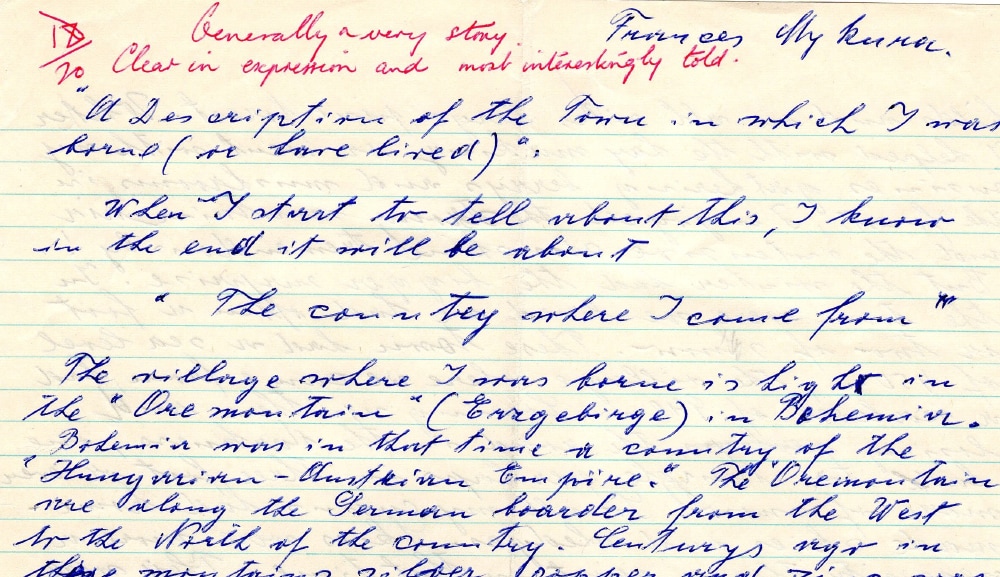 18/20 Generally a very story. Frances Mykura.
Clear in expression and most interestingly told.
"A Description of the Town in which I was
borne (or have lived)":
When I start to tell about this, I know
in the end it will be about
" The country where I come from "
The village where I was borne is hight in
the "Oremountain" (Erzgebirge) in Bohemia.
Bohemia was in that time a country of the
"Hungarian-Austrian Empire." The Oremountain
are along the German boarder from the West
to the North of the country. Centurys ago in
these mountains silber, copper and